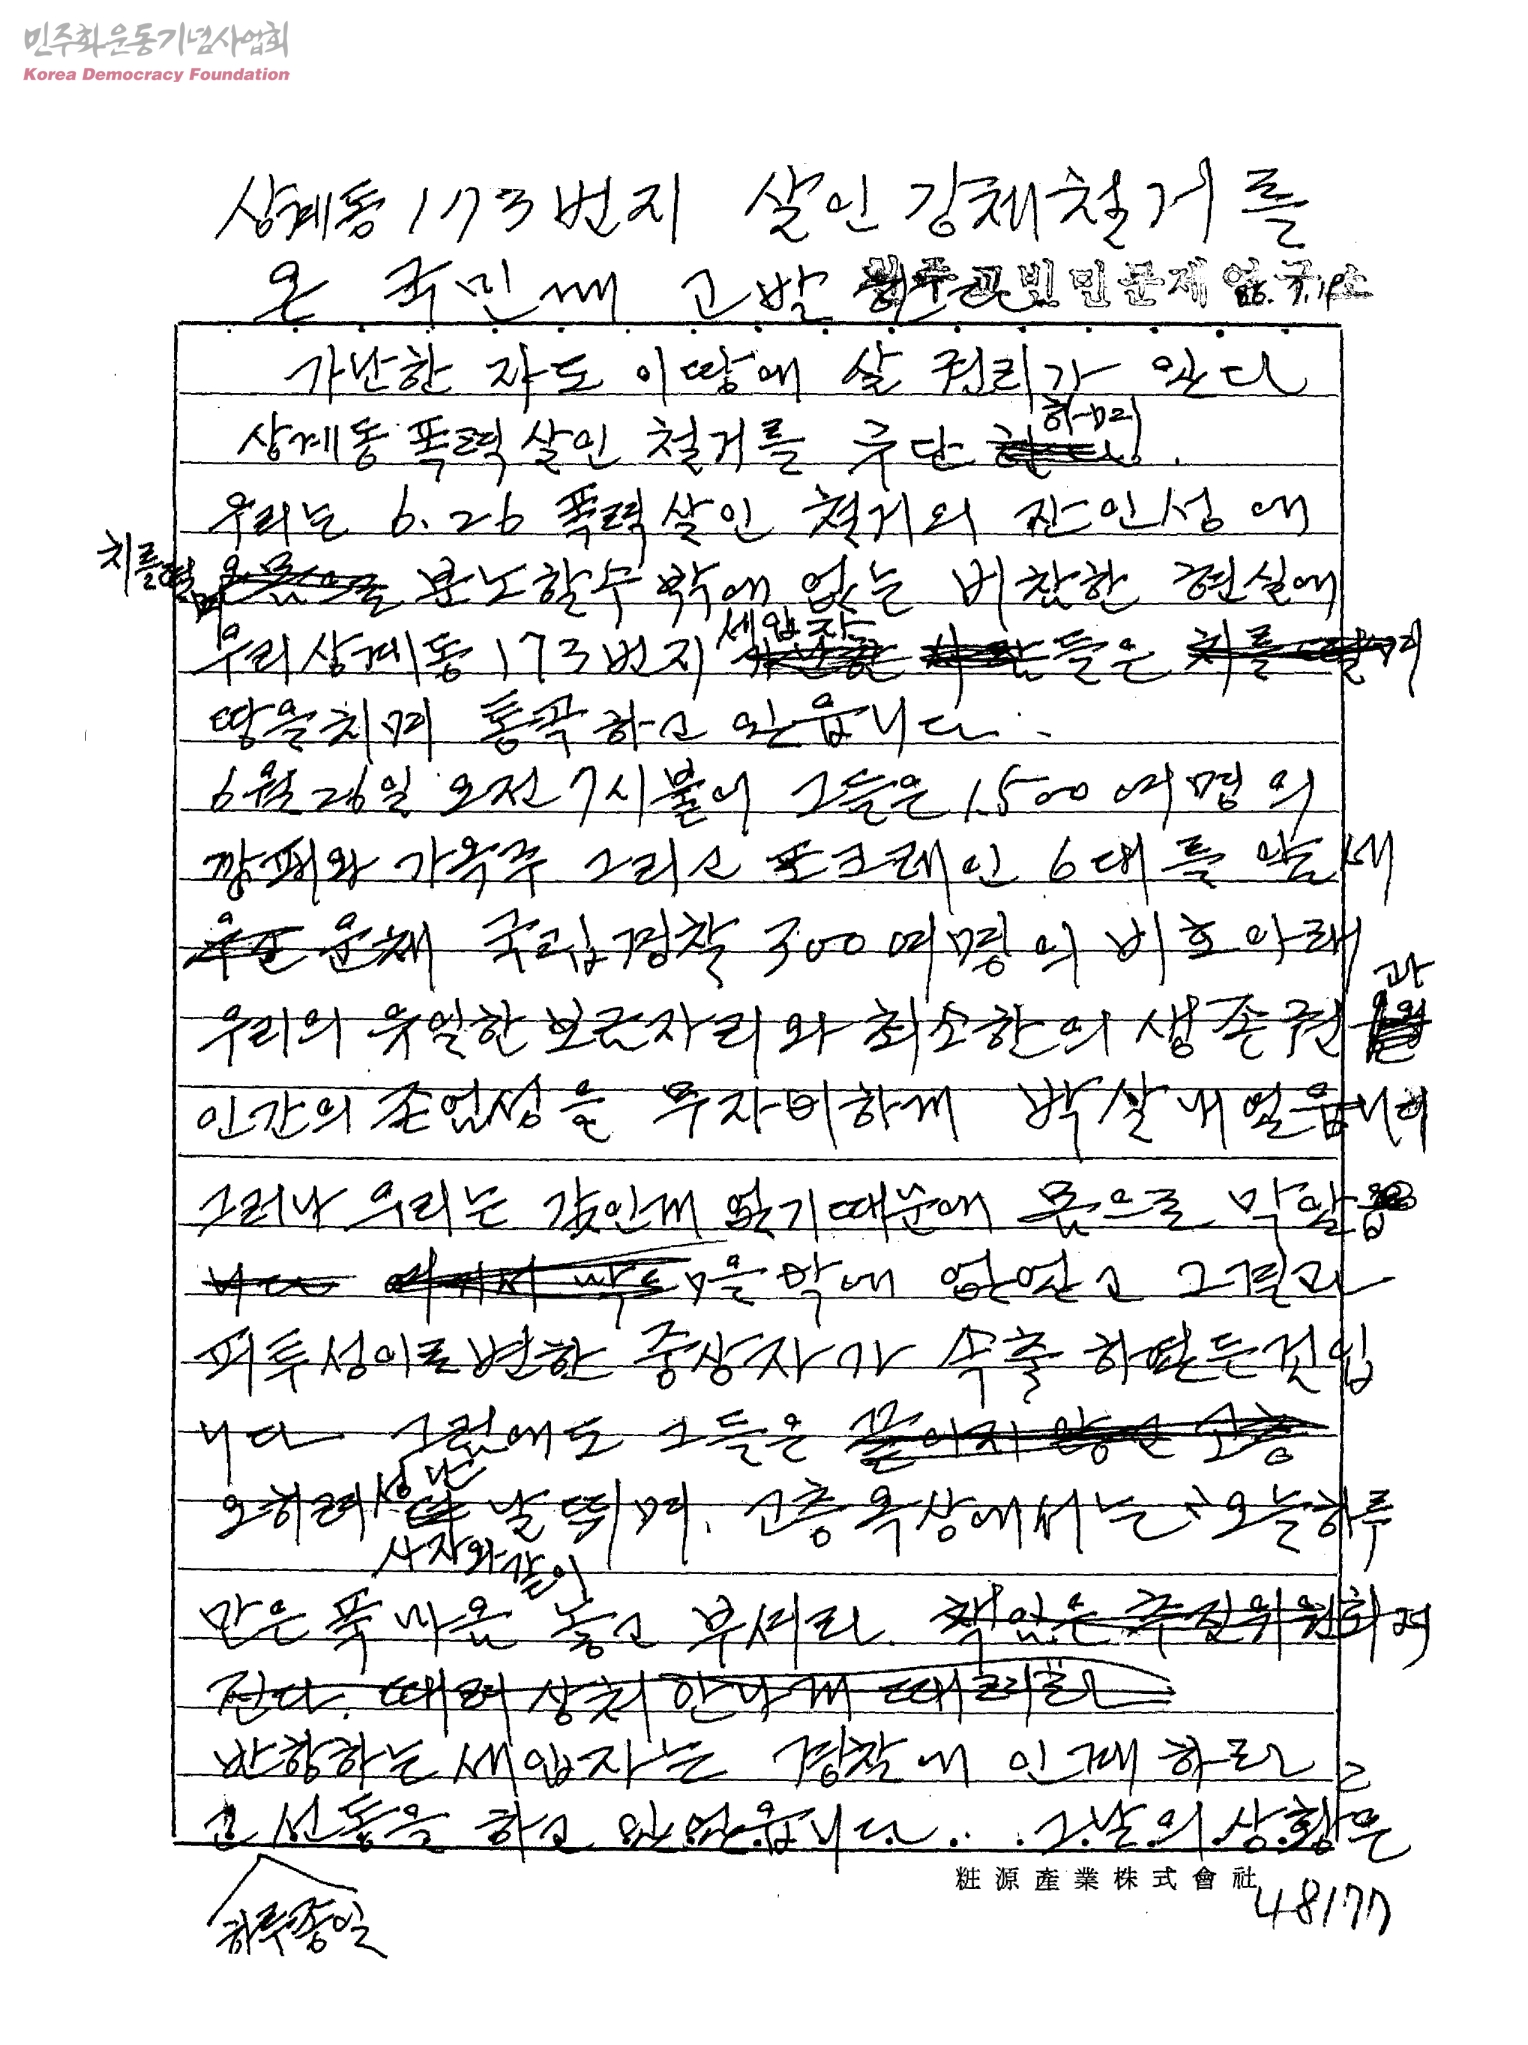 민주화운동기념사업회
Korea Democracy Foundation
상계동 173번지 살인강제철거를
온 국민께 고발 빈민문제연구소
86. 7. 19
가난한 자도 이땅에 살 권리가 있다
하며
상계동폭력살인 철거를 규탄한다.
우리는 6.26 폭력살인 철거의 잔인성에
치를떨며
온몸으로 분노할수밖에 없는 비참한 현실에
세입자
우리상계동 173번지 들은 치를떨며
땅을치며 통곡하고 있읍니다.
6월26일 오전7시불어 그들은 1.500여명의
깡패와 가옥주 그리고 포크레인 6대를 앞세
우고 운채 국립경찰 300여명의 비호아래
과
우리의 유일한 보금자리와 최소한의 생존권을
인간의 존엄성을 무자비하게 박살내었읍니다
그러나 우리는 갈인게 없기때문에 몸으로 막았읍
니다 을막에 없었고 그럴고
피투성이로변한 중상자가 속출하였든것입
니다 그럼에도 그들은 끝이지 않고
성난
오히려 날뛰며. 고층옥상에서는 오늘하루
사자와같이
만은 푹 마음놓고 부셔라. 책임은 추진위원회가
진다. 때려 상처안나게 때려라
반항하는 세입자는 경찰에 인계하라고
고 선동을 하고 있었읍니다... 그날의상황은
粧源產業株式會社
48177
하루종일